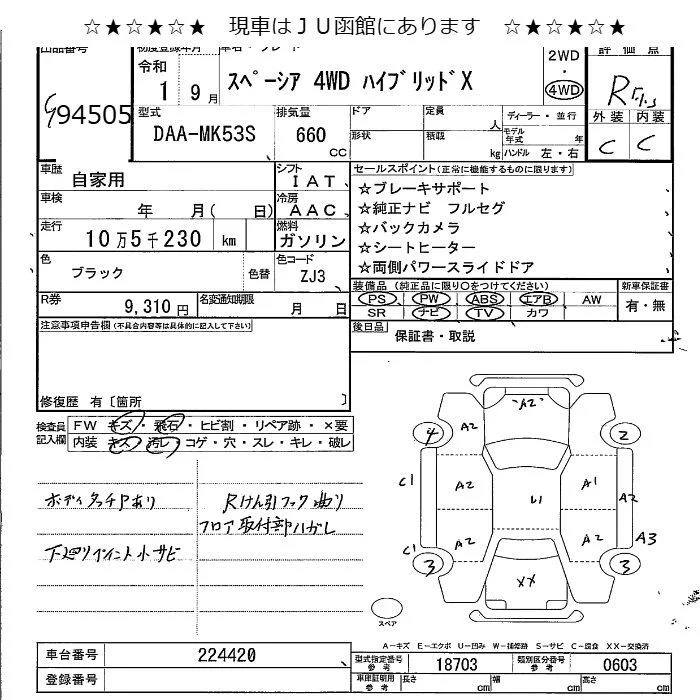 ☆★☆★☆★ 現車はＪＵ函館にあります ☆★☆★☆★
出品番号 初度登録年月 車名・グレード 評価点
令和 1 9月
スペーシア 4WD ハイブリッドX
2WD ・ 4WD
R
94505
型式 DAA-MK53S
排気量 660 CC
ドア 定員 人 ディーラー・並行
形状 積載 kg モデル年式 年
ハンドル 左・右
外装 内装
C C
車歴 自家用
シフト IAT
車検 年 月( 日)
冷房 AAC
走行 10万5千230 km
燃料 ガソリン
色 ブラック 色替
色コード ZJ3
R券 9,310円 名変通知期限 月 日
セールスポイント(正常に機能するものに限ります)
☆ブレーキサポート
☆純正ナビ フルセグ
☆バックカメラ
☆シートヒーター
☆両側パワースライドドア
装備品 (純正品に限り○をつけてください) 新車保証書
PS PW ABS エアB AW 有・無
SR ナビ TV カワ
後日品 保証書・取説
注意事項申告欄(不具合内容等は具体的に記入して下さい)
修復歴 有〔箇所 〕
検査員記入欄 FW キズ・飛石・ヒビ割・リペア跡・×要
内装 キズ・汚レ・コゲ・穴・スレ・キレ・破レ
ボディタッチPあり
下廻りペイント小サビ
Rけん引フック曲り
フロア取付部ハガレ
A2
4 A2 2
C1 A2 U1 A1 A2
C1 A2 A2 A3
3 XX 3
スペア
A－キズ E－エクボ U－凹み W－補修跡 S－サビ C－腐食 XX－交換済
車台番号 224420
登録番号
型式指定番号 参考 18703 類別区分番号 参考 0603
車庫証明用 参考 長さ cm 幅 cm 高さ cm